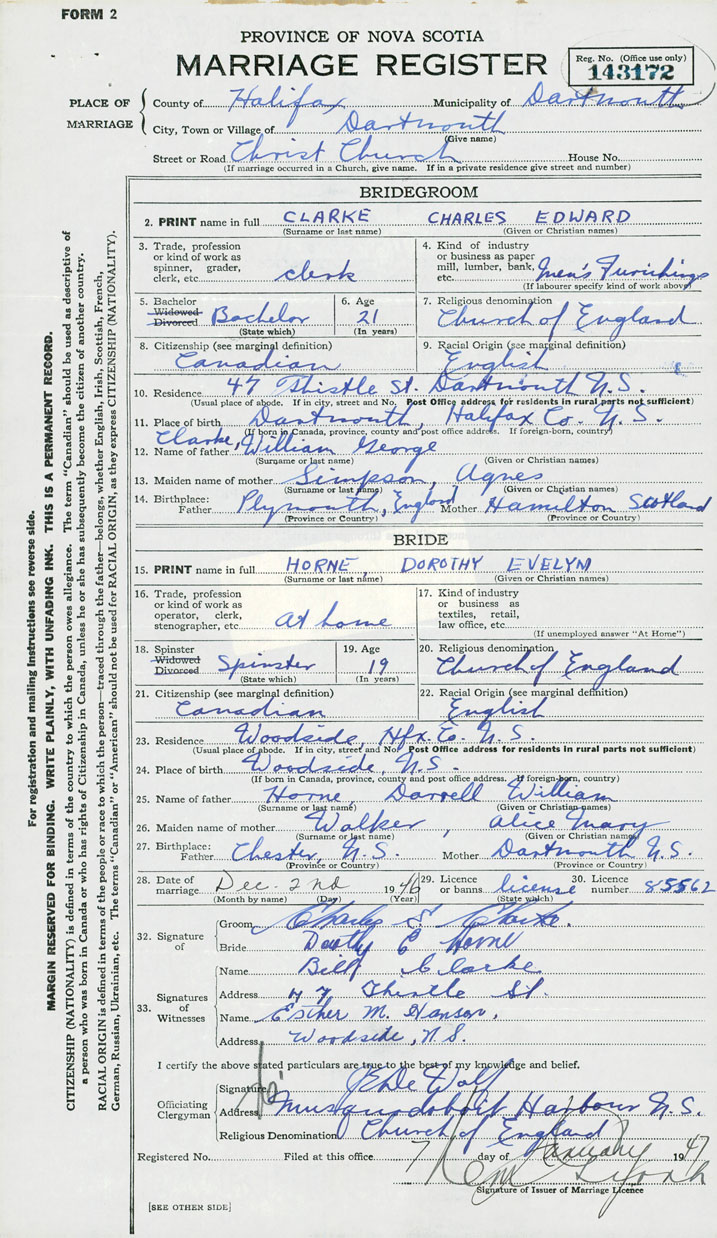 FORM 2
PROVINCE OF NOVA SCOTIA
MARRIAGE REGISTER
Reg. No. (Office use only)
143172
PLACE OF MARRIAGE
County of Halifax Municipality of Dartmouth
City, Town or Village of Dartmouth
(Give name)
Street or Road Christ Church House No.
(If marriage occurred in a Church, give name. If in a private residence give street and number)
BRIDEGROOM
2. PRINT name in full CLARKE CHARLES EDWARD
(Surname or last name) (Given or Christian names)
3. Trade, profession or kind of work as spinner, grader, clerk, etc. clerk
4. Kind of industry or business as paper mill, lumber, bank, etc. Men's Furnishings
(If labourer specify kind of work above)
5. Bachelor Widowed Divorced Bachelor
(State which)
6. Age 21
(In years)
7. Religious denomination
Church of England
8. Citizenship (see marginal definition)
Canadian
9. Racial Origin (see marginal definition)
English
10. Residence 47 Thistle St. Dartmouth N.S.
(Usual place of abode. If in city, street and No. Post Office address for residents in rural parts not sufficient)
11. Place of birth Dartmouth, Halifax Co. N.S.
(If born in Canada, province, county and post office address. If foreign-born, country)
12. Name of father Clarke, William George
(Surname or last name) (Given or Christian names)
13. Maiden name of mother Simpson, Agnes
(Surname or last name) (Given or Christian names)
14. Birthplace: Father Plymouth, England Mother Hamilton Scotland
(Province or Country) (Province or Country)
BRIDE
15. PRINT name in full HORNE, DOROTHY EVELYN
(Surname or last name) (Given or Christian names)
16. Trade, profession or kind of work as operator, clerk, stenographer, etc. At home
17. Kind of industry or business as textiles, retail, law office, etc.
(If unemployed answer "At Home")
18. Spinster Widowed Divorced Spinster
(State which)
19. Age 19
(In years)
20. Religious denomination
Church of England
21. Citizenship (see marginal definition)
Canadian
22. Racial Origin (see marginal definition)
English
23. Residence Woodside, Hfx. Co. N.S.
(Usual place of abode. If in city, street and No. Post Office address for residents in rural parts not sufficient)
24. Place of birth Woodside, N.S.
(If born in Canada, province, county and post office address. If foreign-born, country)
25. Name of father Horne Darrell William
(Surname or last name) (Given or Christian names)
26. Maiden name of mother Walker, Alice Mary
(Surname or last name) (Given or Christian names)
27. Birthplace: Father Chester, N.S. Mother Dartmouth N.S.
(Province or Country) (Province or Country)
28. Date of marriage Dec. 2nd 1946
(Month by name) (Day) (Year)
29. Licence or banns license
(State which)
30. Licence number 85562
32. Signature of
Groom Charles E. Clarke
Bride Dorothy E Horne
33. Signatures of Witnesses
Name Bill Clarke
Address 47 Thistle St.
Name Esther M. Hanson,
Address Woodside, N.S.
I certify the above stated particulars are true to the best of my knowledge and belief.
Officiating Clergyman
Signature DeWolf
Address Musquodoboit Harbour N.S.
Religious Denomination Church of England
Registered No. Filed at this office 7 day of January 1947
Signature of Issuer of Marriage Licence
[SEE OTHER SIDE]
For registration and mailing instructions see reverse side.
MARGIN RESERVED FOR BINDING. WRITE PLAINLY, WITH UNFADING INK. THIS IS A PERMANENT RECORD.
CITIZENSHIP (NATIONALITY) is defined in terms of the country to which the person owes allegiance. The term "Canadian" should be used as descriptive of
a person who was born in Canada or who has rights of Citizenship in Canada, unless he or she has subsequently become the citizen of another country.
RACIAL ORIGIN is defined in terms of the people or race to which the person—traced through the father—belongs, whether English, Irish, Scottish, French,
German, Russian, Ukrainian, etc. The terms "Canadian" or "American" should not be used for RACIAL ORIGIN, as they express CITIZENSHIP (NATIONALITY).